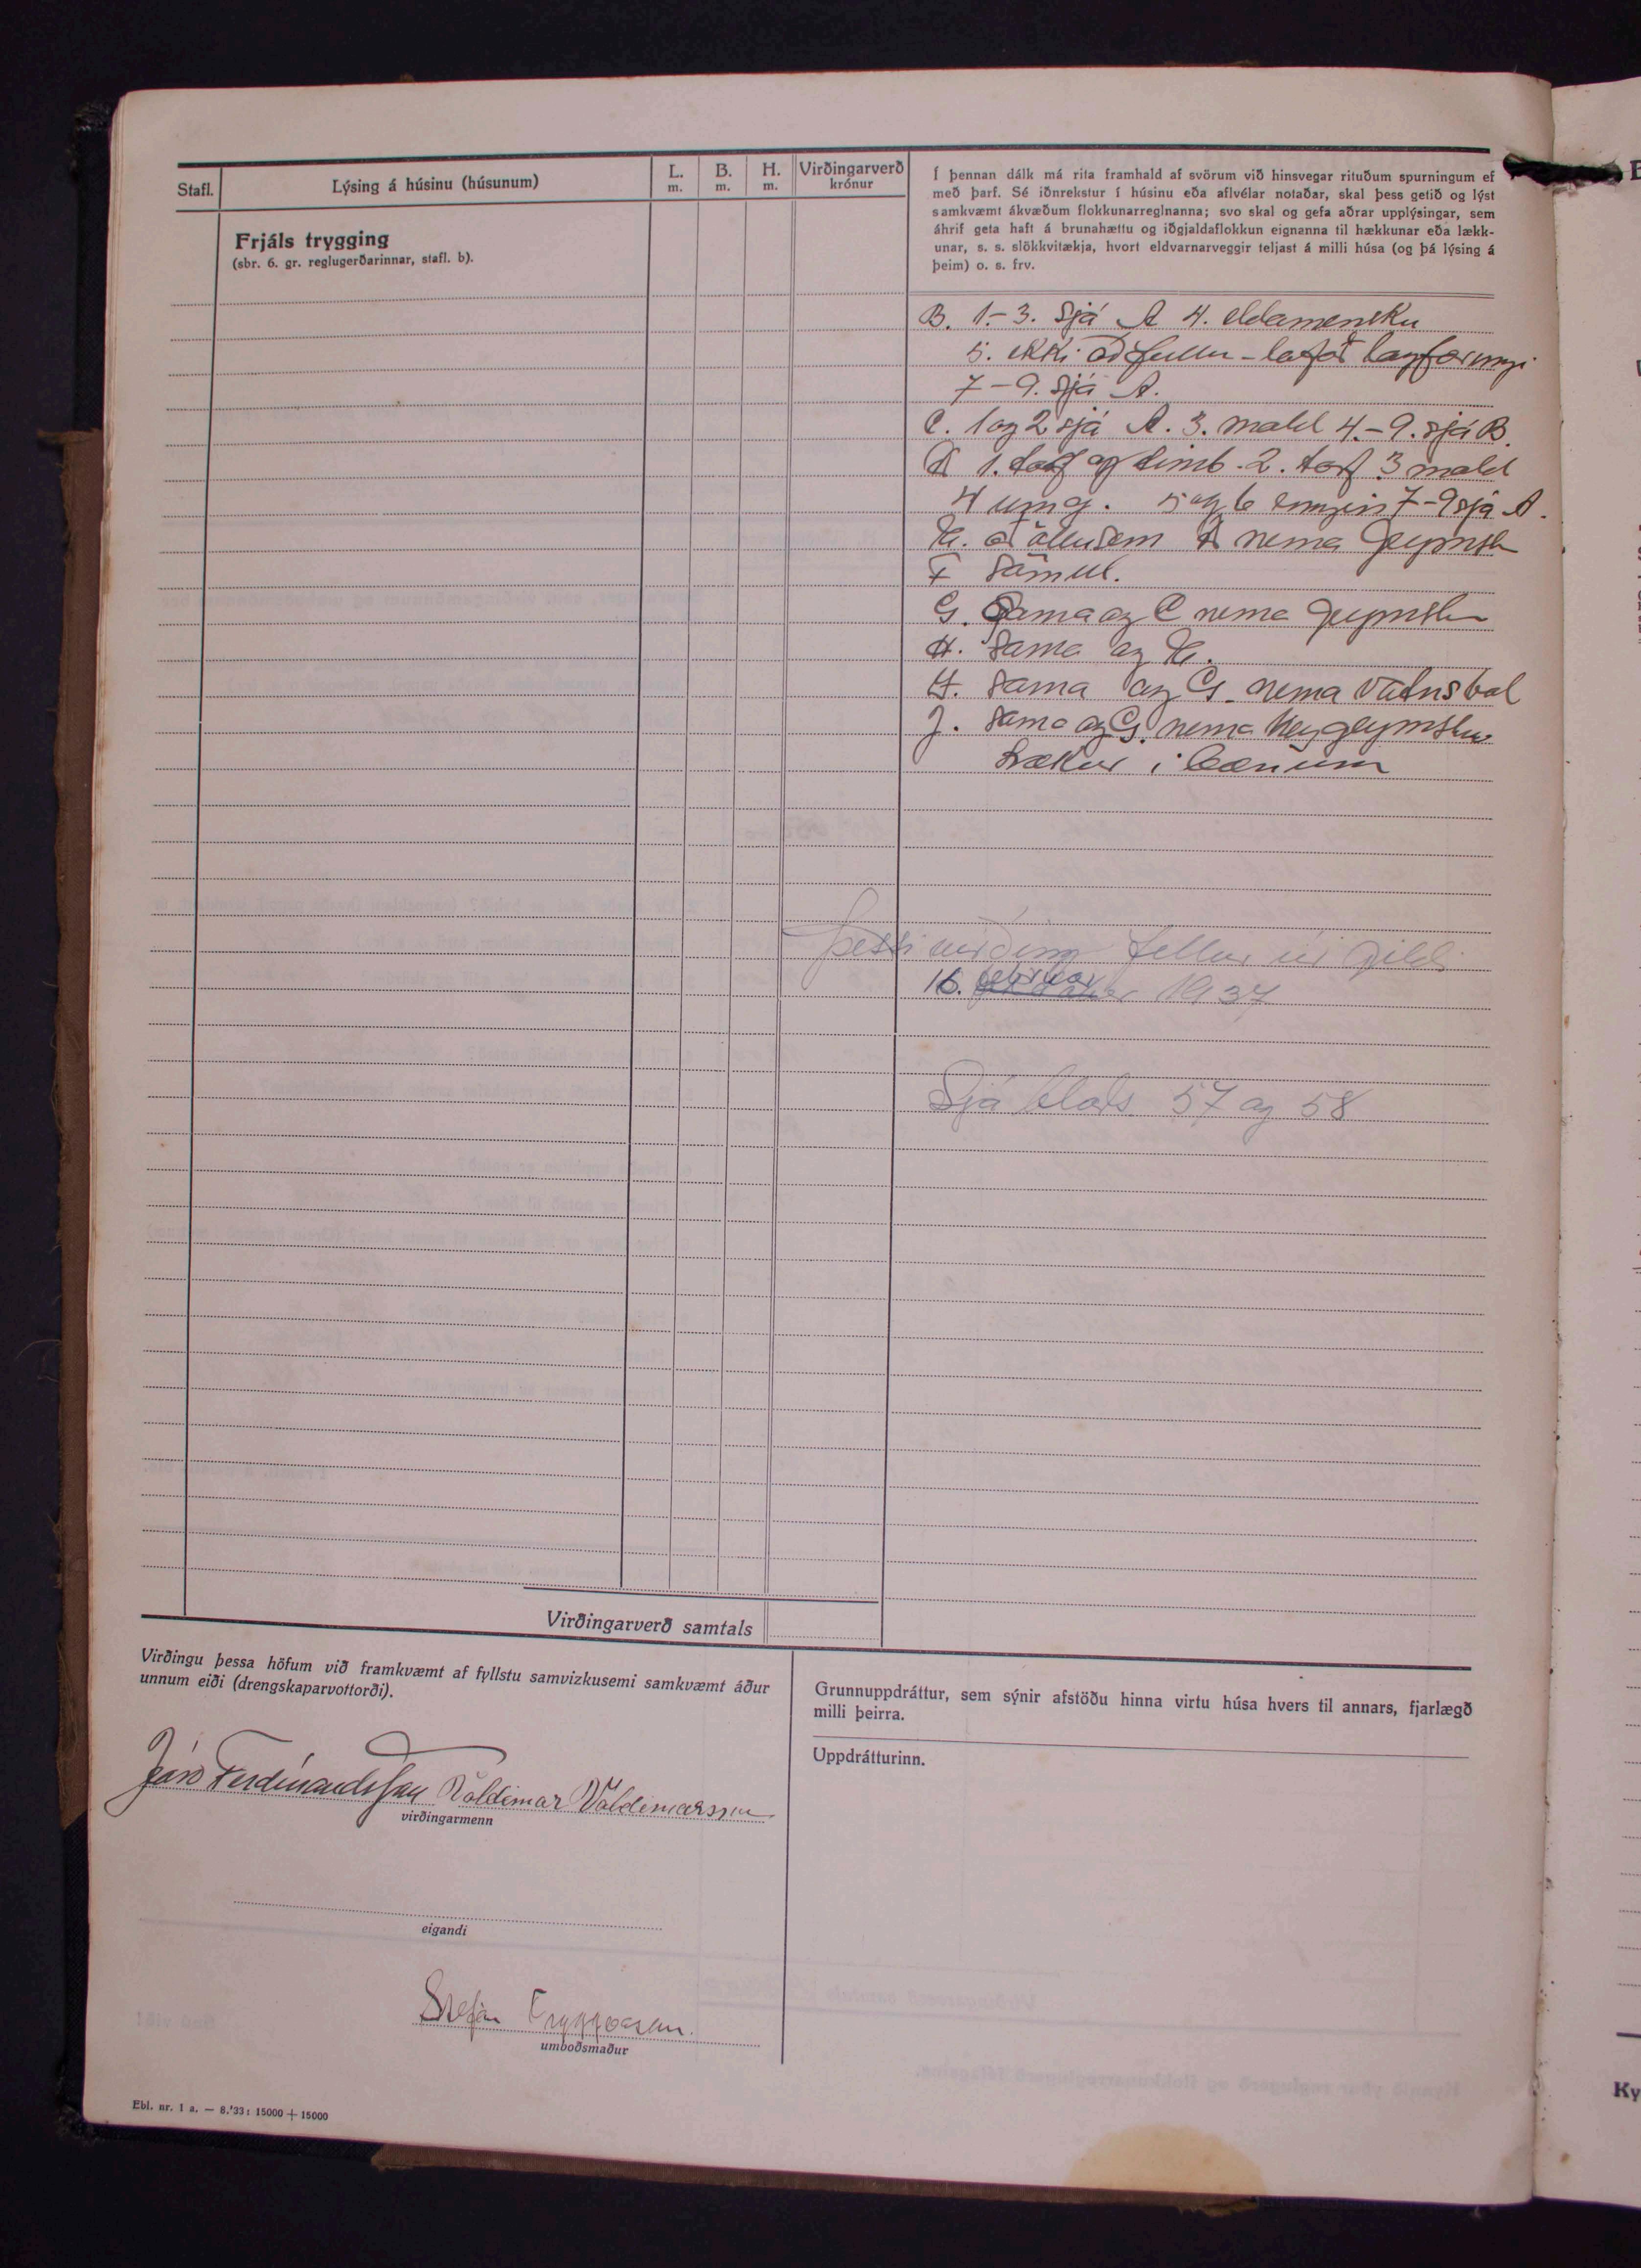 Stafl.
Lýsing á húsinu (húsunum)
L.
m.
B.
m.
H.
m.
Virðingarverð
krónur
Frjáls trygging
(sbr. 6. gr. reglugerðarinnar, stafl. b).
Í þennan dálk má rita framhald af svörum við hinsvegar rituðum spurningum ef
með þarf. Sé iðnrekstur í húsinu eða aflvélar notaðar, skal þess getið og lýst
samkvæmt ákvæðum flokkunarreglnanna; svo skal og gefa aðrar upplýsingar, sem
áhrif geta haft á brunahættu og iðgjaldaflokkun eignanna til hækkunar eða lækk-
unar, s. s. slökkvitækja, hvort eldvarnarveggir teljast á milli húsa (og þá lýsing á
þeim) o. s. frv.
B. 1.-3. sjá A 4. eldamensku
5. ekki að fullu - lofað lagfæringu
7-9. sjá A.
C. 1 og 2 sjá A. 3. mold 4.-9. sjá B.
D 1. torf og timb. 2. torf 3 mold
4 umg. 5 og 6 engin 7-9 sjá A.
E. að öllu sem D nema geymsla
F sömul.
G. Sama og C nema geymsla
H. sama og E.
I. sama og G. nema vatnsból
J. sama og G. nema heygeymslu
Lækur í bænum
Þessi virðing fellur úr gildi
16. febrúar 1937
Sjá blads 57 og 58
Virðingarverð samtals
Virðingu þessa höfum við framkvæmt af fyllstu samvizkusemi samkvæmt áður
unnum eiði (drengskaparvottorði).
Jón Ferdínandsson Valdimar Valdimarsson
virðingarmenn
eigandi
Stefán Tryggvason.
umboðsmaður
Grunnuppdráttur, sem sýnir afstöðu hinna virtu húsa hvers til annars, fjarlægð
milli þeirra.
Uppdrátturinn.
Ebl. nr. 1 a. — 8.'33: 15000 + 15000
Ky